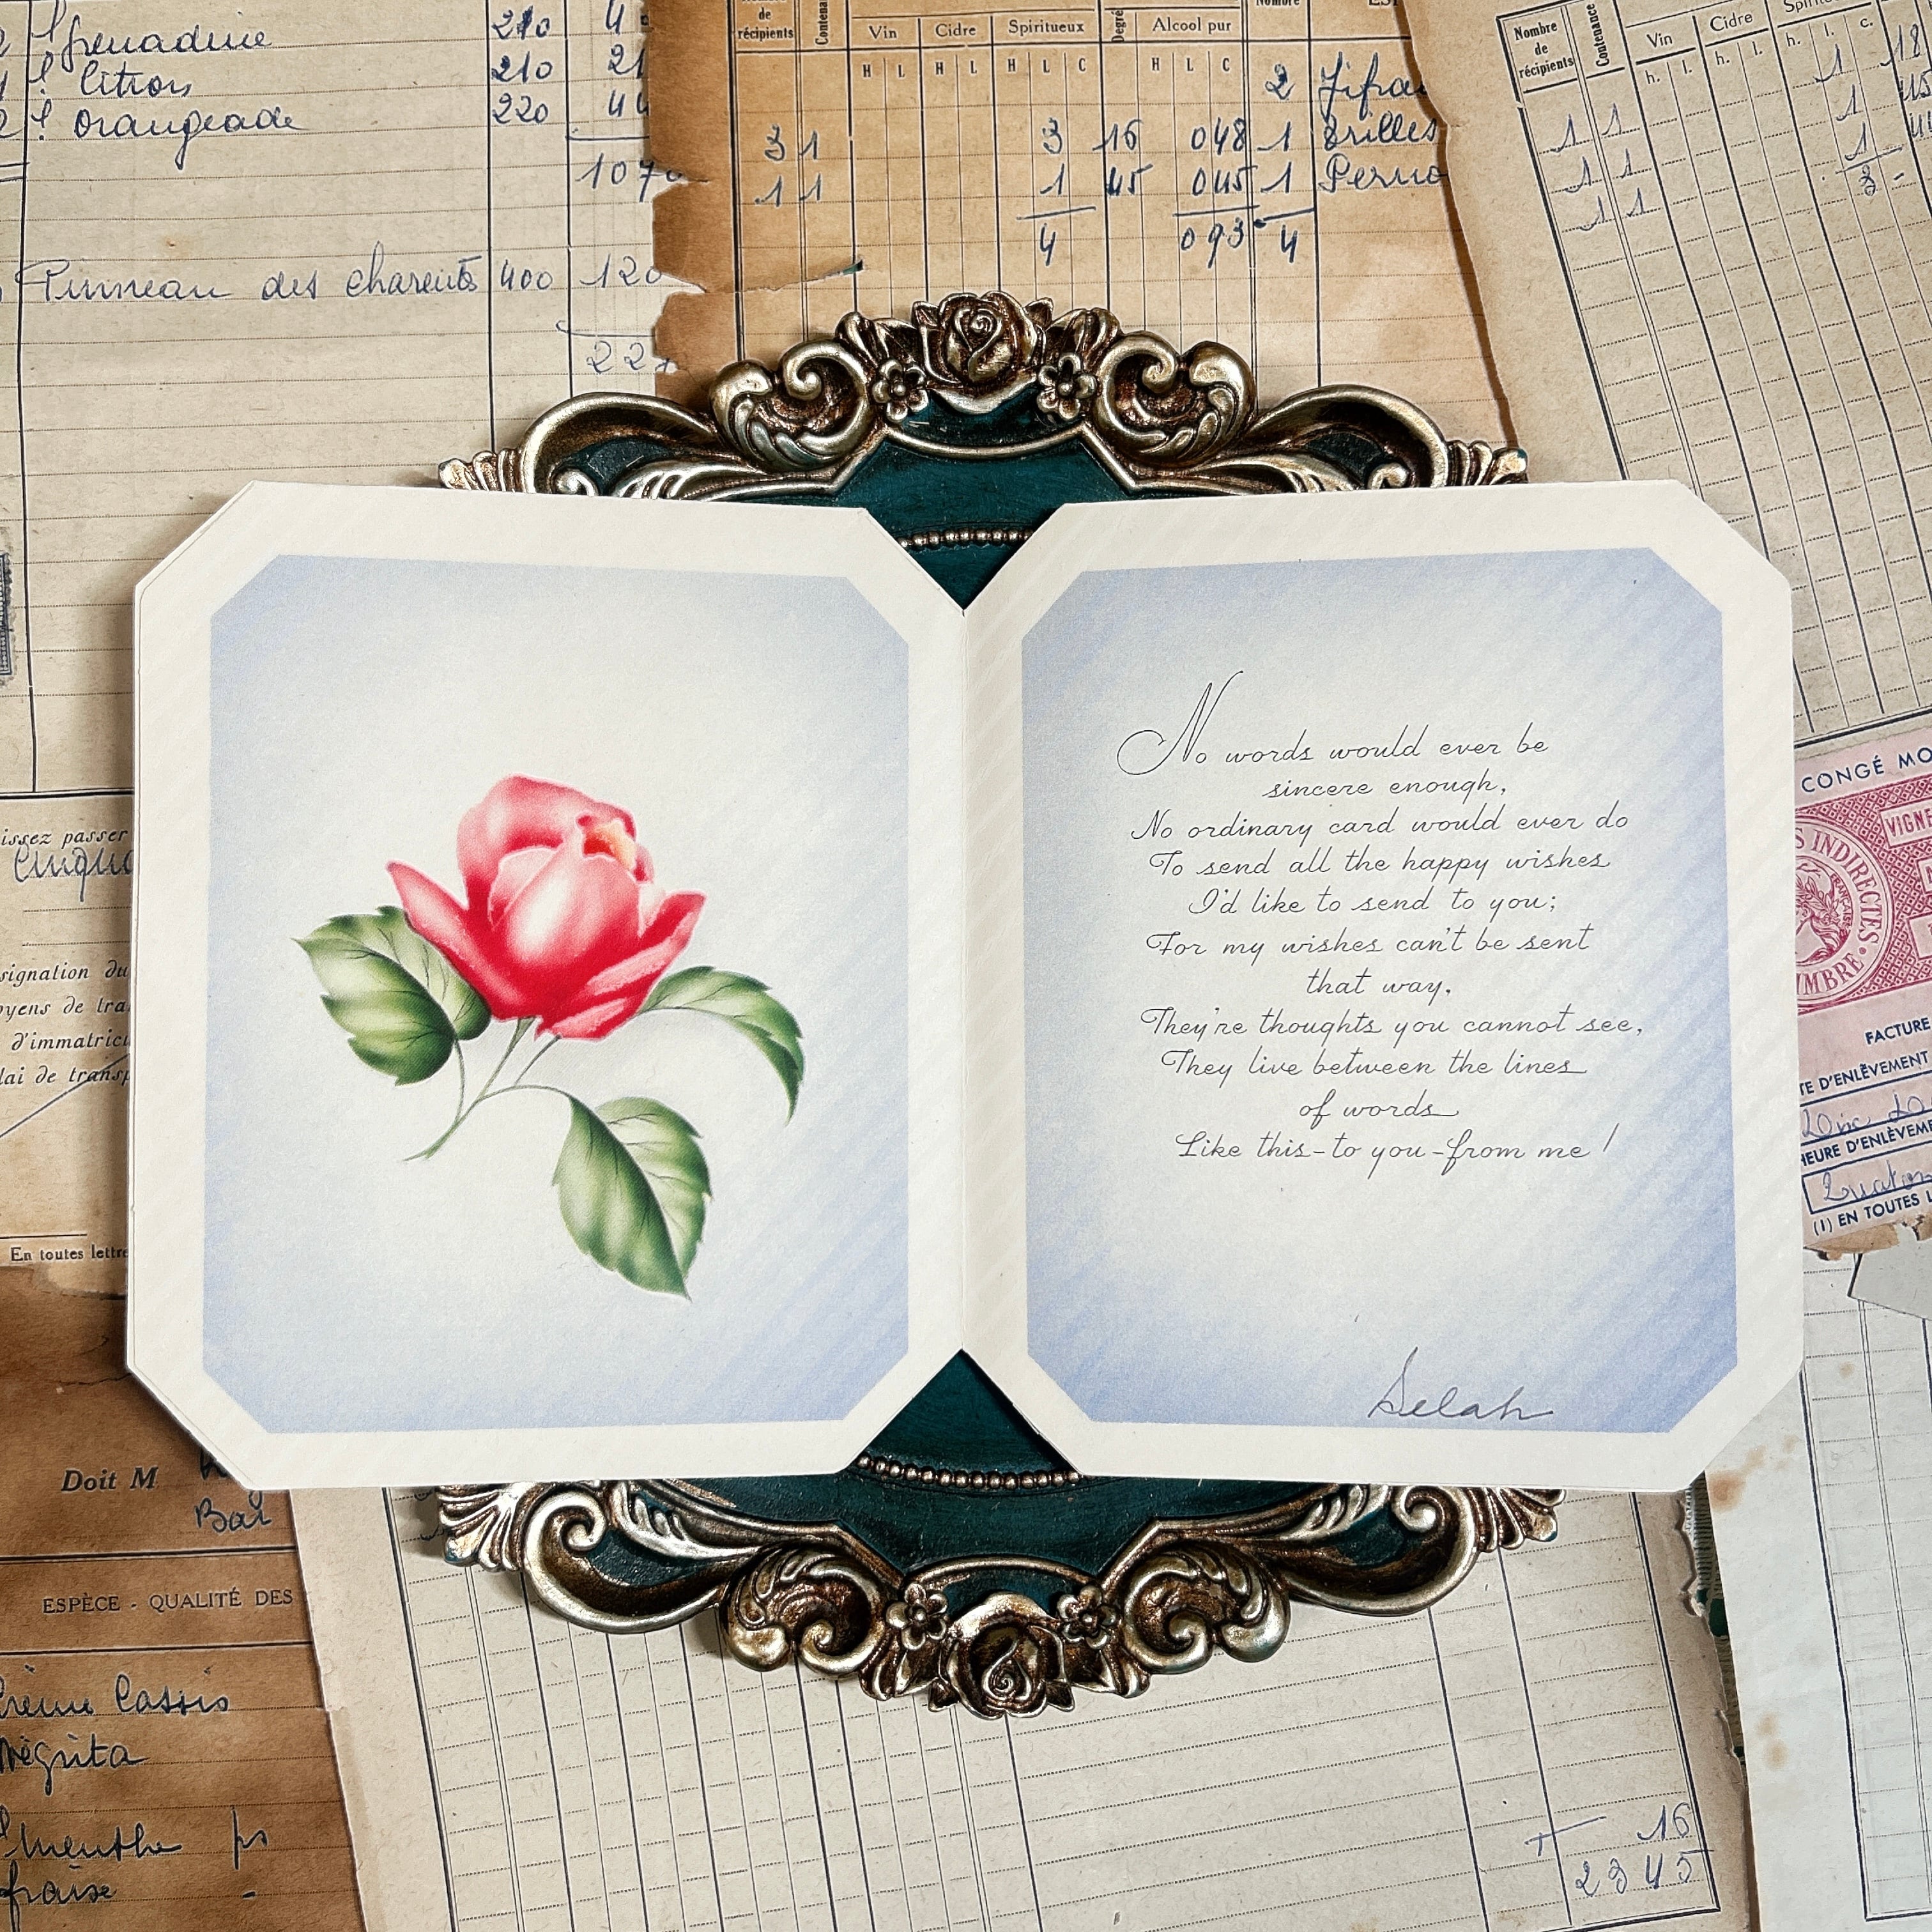 grenadine 210
citron 210
orangeade 220 44
Pinneau des charentes 400 120
Nombre
de
récipients
Vin Cidre Spiritueux Alcool pur
H L H L H L C H L C
2
3 1 3 16 048 1
1 1 1 45 045 1
4 093 4
Nombre
de
récipients
Contenance
Vin
Cidre
h. l. h. l. h. l. c.
1 1 1
1 1 1
1 1 1
3 -
No words would ever be
sincere enough,
No ordinary card would ever do
To send all the happy wishes
I'd like to send to you;
For my wishes can't be sent
that way,
They're thoughts you cannot see,
They live between the lines
of words
Like this-to you-from me!
Selah
issez passer
En toutes lettre
Doit M
ESPÈCE - QUALITÉ DES
Cassis
Négrita
menthe
fraise
CONGÉ
INDIRECTES
FACTURE
D'ENLÈVEMENT
HEURE D'ENLÈVEME
(1) EN TOUTES L
T 16
2345